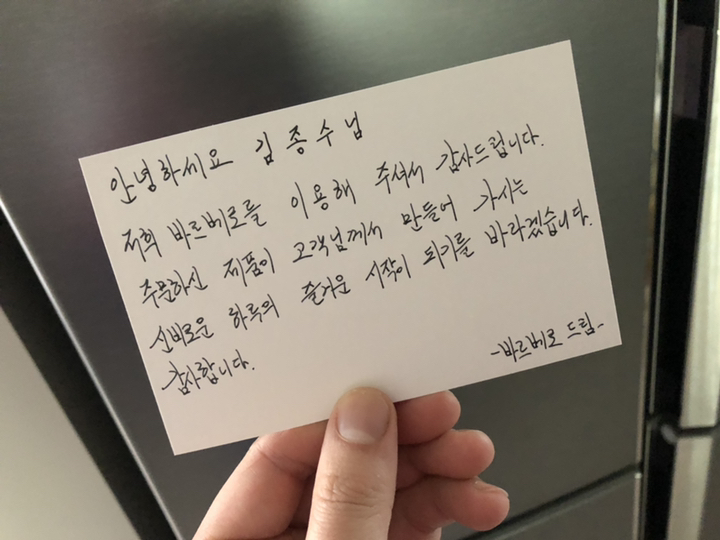 안녕하세요 김종수님
저희 바르베로를 이용해 주셔서 감사드립니다.
주문하신 제품이 고객님께서 만들어 가시는
신비로운 하루의 즐거운 시작이 되기를 바라겠습니다.
감사합니다.
-바르베로 드림-